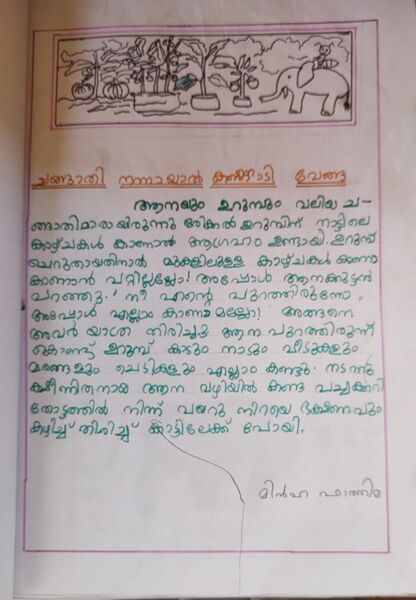 ചങ്ങാതി നന്നായാൽ കണ്ണാടി വേണ്ട
ആനയും ഉറുമ്പും വലിയ ച-
ങ്ങാതിമാരായിരുന്നു ഒരിക്കൽ ഉറുമ്പിന് നാട്ടിലെ
കാഴ്ചകൾ കാണാൻ ആഗ്രഹം ഉണ്ടായി. ഉറുമ്പ്
ചെറുതായതിനാൽ മുകളിലുള്ള കാഴ്ചകൾ ഒന്നും
കാണാൻ പറ്റില്ലല്ലോ! അപ്പോൾ ആനക്കുട്ടൻ
പറഞ്ഞു. ' നീ എന്റെ പുറത്തിരുന്നോ,
അപ്പോൾ എല്ലാം കാണാമല്ലോ! അങ്ങനെ
അവർ യാത്ര തിരിച്ചു. ആന പുറത്തിരുന്ന്
കൊണ്ട് ഉറുമ്പ് കാടും നാടും വീടുകളും
മരങ്ങളും ചെടികളും എല്ലാം കണ്ടു. നടന്നു
ക്ഷീണിതനായ ആന വഴിയിൽ കണ്ട പച്ചക്കറി
തോട്ടത്തിൽ നിന്ന് വയറു നിറയെ ഭക്ഷണവും
കഴിച്ച് തിരിച്ച് കാട്ടിലേക്ക് പോയി.
മിൻഹ ഫാത്തിമ